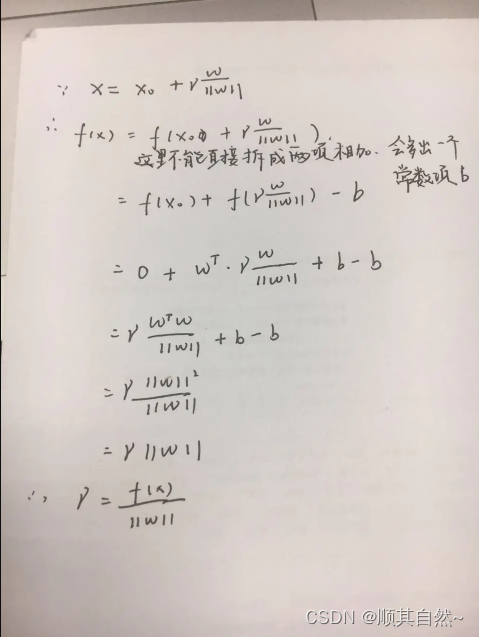 ∵ x = x₀ + γ w/||w||
∴ f(x) = f(x₀ + γ w/||w||)
这里不能直接拆成两项相加. 会多出一个常数项 b
= f(x₀) + f(γ w/||w||) - b
= 0 + wᵀ · γ w/||w|| + b - b
= γ wᵀw/||w|| + b - b
= γ ||w||²/||w||
= γ ||w||
∴ γ = f(x)/||w||
CSDN @顺其自然~